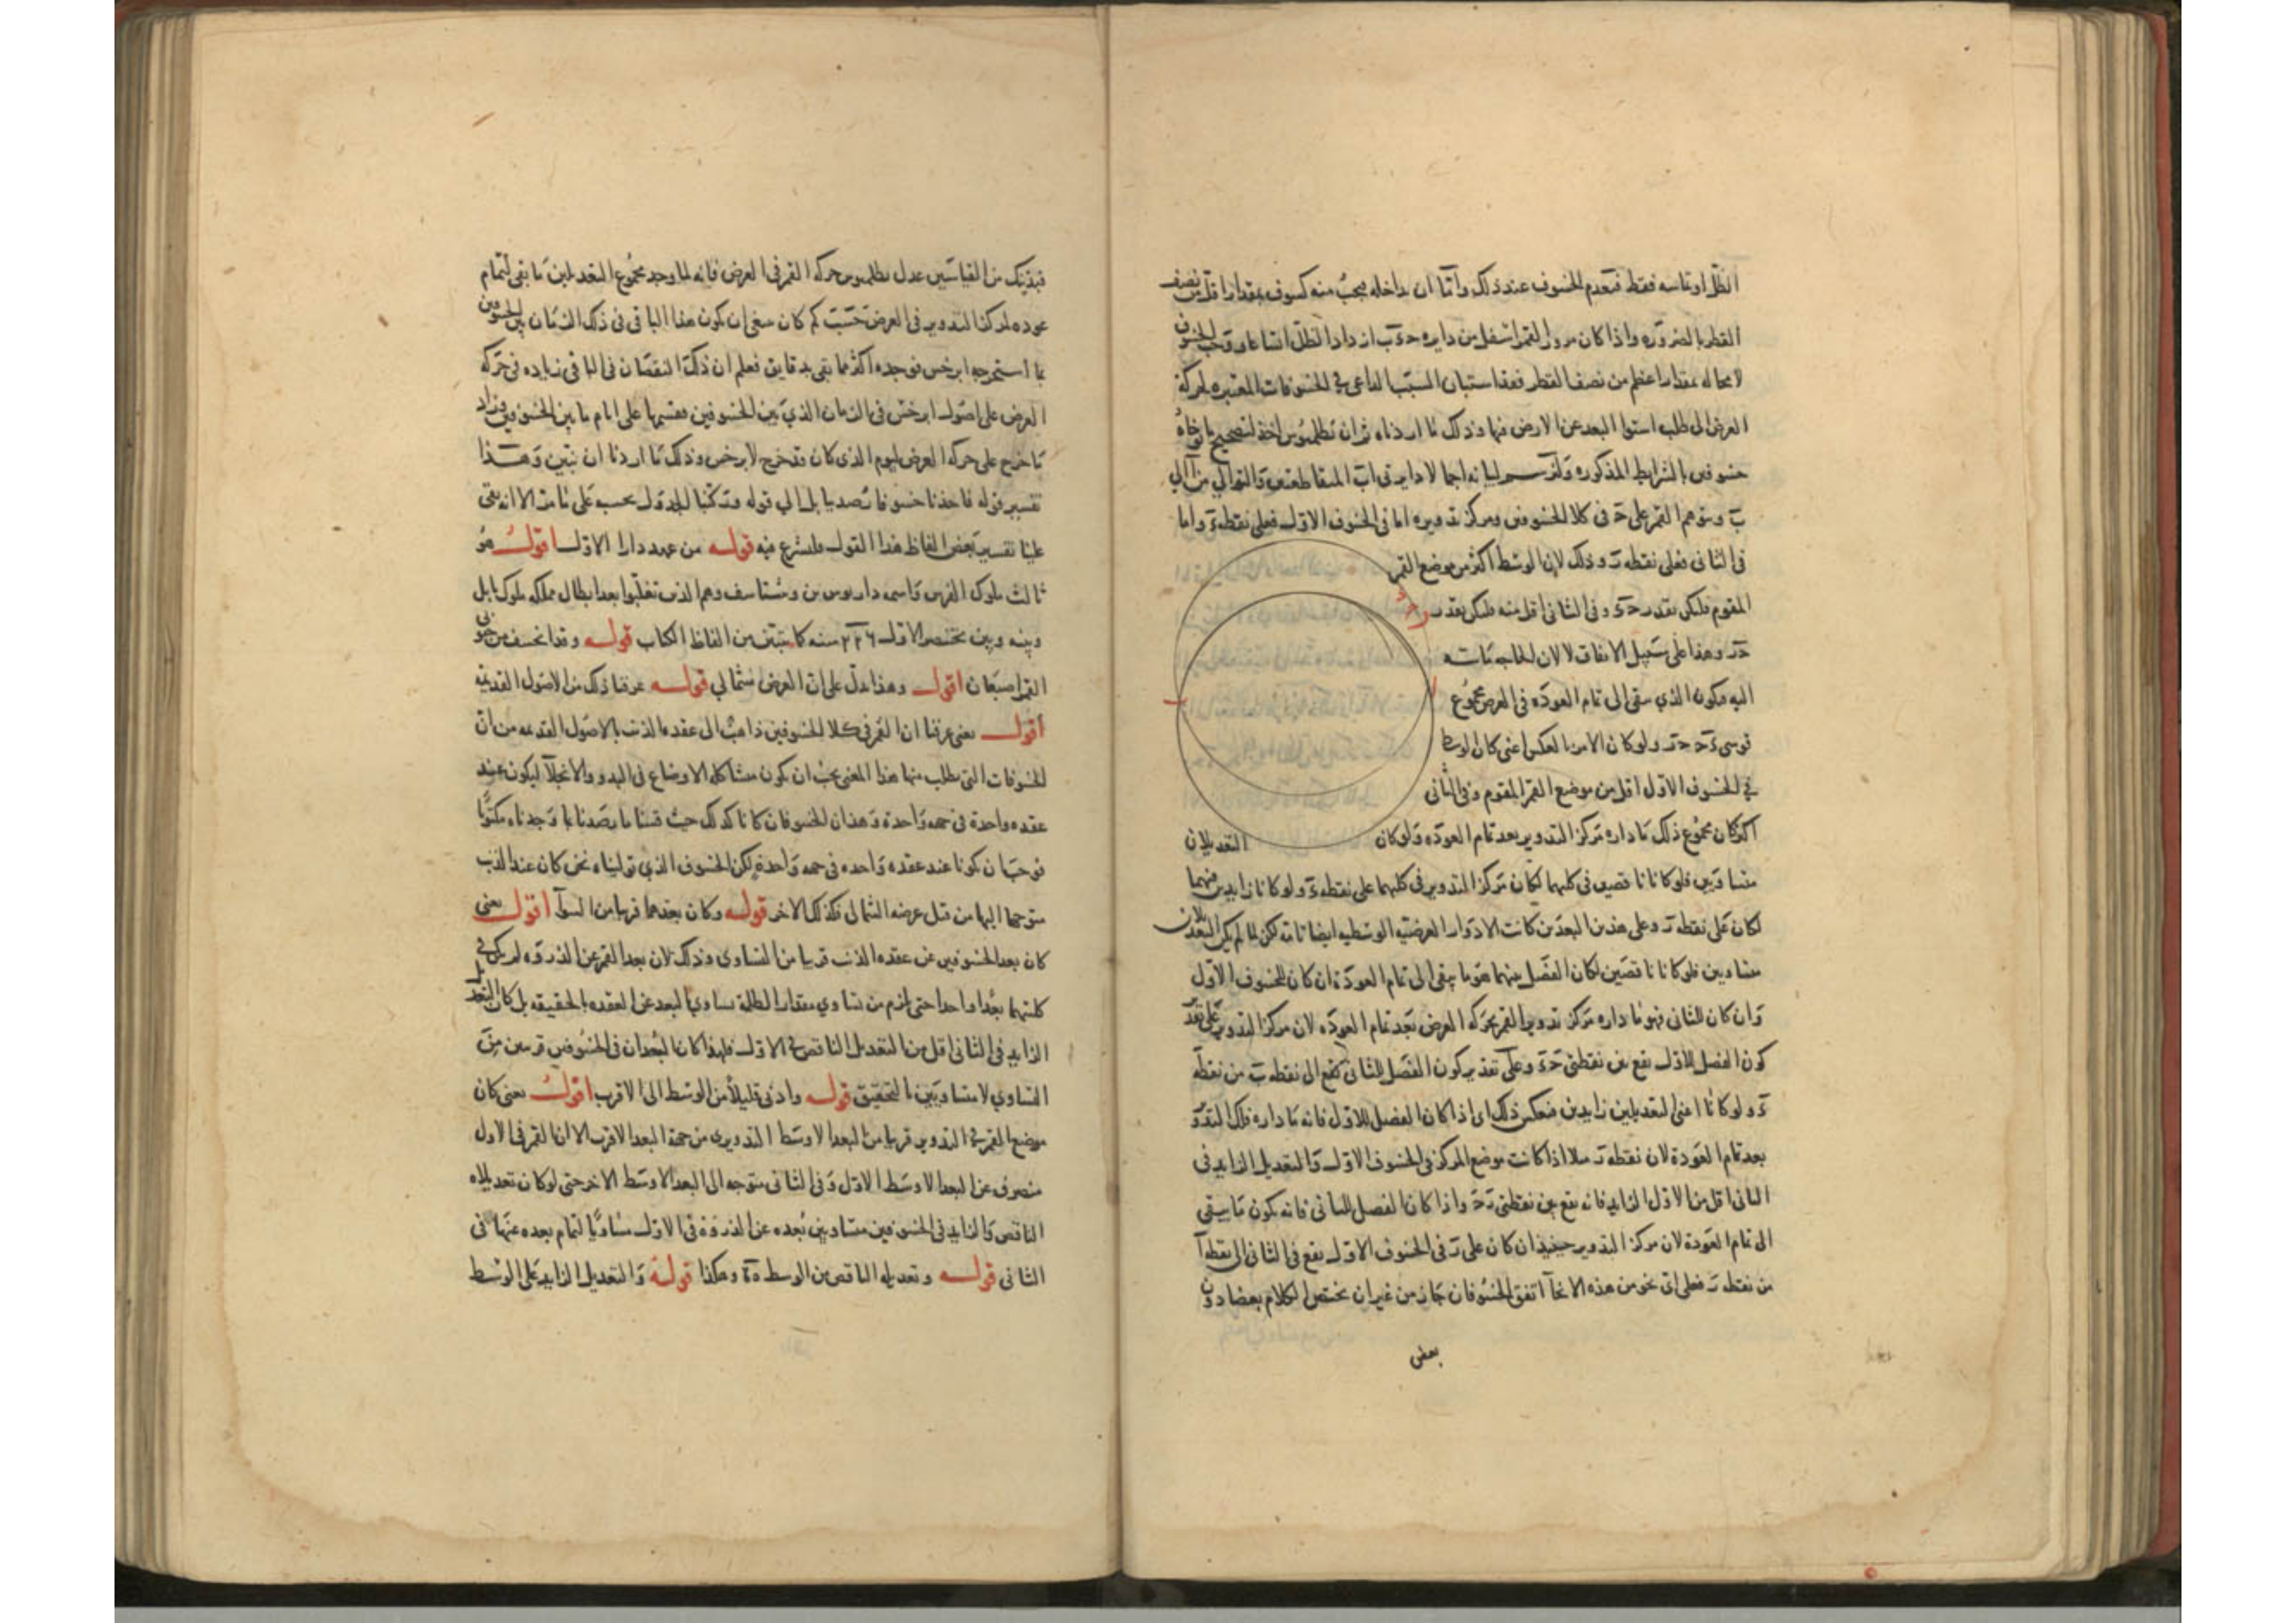 الظل او تماسه فقط فيعدم الخسوف عند ذلك واما ان يداخله فيجب منه كسوف بمقدار اقل من نصف
القطر بالضرورة واذا كان مرور القمر اسفل من دايره حءب ازداد الظل اتساعا ووجب الخسوف
لا محاله بمقدار اعظم من نصف القطر فقد استبان السبب الداعى في الخسوفات المعتبره لحركة
العرض الى طلب استوا البعد عن الارض فيها وذلك ما اردناه ثم ان بطلميوس اخذ لتصحيح ما توخاه
خسوفين بالشرايط المذكوره ولنرسم لبيانه اجمالا دايرتى اب المتقاطعتين والتوالي من آ الي
ب ونتوهم القمر على ح فى كلا الخسوفين ومركز تدويره اما فى الخسوف الاول فعلى نقطه ء واما
فى الثانى فعلى نقطه ر وذلك لان الوسط اكثر من موضع القمر
المقوم فليكن بقدر حء وفى الثانى اقل منه فليكن بقدر
حر وهذا على سبيل الاتفاق لا لان الحاجه ماسه
اليه فيكون الذي يبقى الى تمام العودة فى العرض مجموع
قوسى ءح حر ولو كان الامر بالعكس اعنى كان الوسط
في الخسوف الاول اقل من موضع القمر المقوم وفى الثانى
اكثر كان مجموع ذلك ما داره مركز التدوير بعد تمام العوده ولو كان التعديلان
متساويين فلو كانا ناقصين فى كليهما لكان مركز التدوير فى كليهما على نقطه ء ولو كانا زايدين فيهما
لكان على نقطه ر وعلى هذين البعدين كانت الادوار العرضيه الوسطيه ايضا تامه لكن لما لم يكن التعديلان
متساويين فلو كانا ناقصين لكان الفضل بينهما هو ما يبقى الى تمام العودة ان كان للخسوف الاول
وان كان للثانى فهو ما داره مركز تدوير القمر بحركه العرض بعد تمام العوده لان مركز التدوير على تقدير
كون الفضل للاول يقع بين نقطتى حء وعلى تقدير كون الفضل للثانى يقع الى نقطه ب من نقطه
ء ولو كانا اعنى التعديلين زايدين فبعكس ذلك اى اذا كان الفضل للاول فانه ما داره فلك التدوير
بعد تمام العودة لان نقطه ر مثلا اذا كانت موضع المركز فى الخسوف الاول والتعديل الزايد فى
الثانى اقل من الاول الزايد فانه يقع بين نقطتى رح واذا كان الفضل للثانى فانه يكون ما يبقى
الى تمام العودة لان مركز التدوير حينيذ ان كان على ر فى الخسوف الاول يقع فى الثانى الى نقطه آ
من نقطه ر فعلى اى نحو من هذه الانحآ اتفق الخسوفان جاز من غير ان يختص الكلام بعضا دون
بعض
فبذينك من القياسين عدل بطلميوس حركه القمر فى العرض فانه لما وجد مجموع التعديلين ما بقى لتمام
عوده لمركز التدوير فى العرض حسب كم كان ينبغى ان يكون هذا الباقى فى ذلك الزمان بين الخسوفين
بما استخرجه ابرخس فوجده اكثر مما بقى بدقايق فعلم ان ذلك النقصان فى الباقى زياده فى حركه
العرض على اصول ابرخس فى الزمان الذي بين الخسوفين فقسمها على ايام ما بين الخسوفين وزاد
ما خرج على حركه العرض ليوم الذى كان قد خرج لابرخس وذلك ما اردنا ان نبين وهذا
تفسير قوله فاخذنا خسوفا رصد ببابل الي قوله وتركنا الجدول بحسبه على ما مر الا انه بقى
علينا تفسير بعض الفاظ هذا القول فلنشرع فيه قوله من عهد دارا الاول اقول هو
ثالث ملوك الفرس واسمه داريوس بن وشتاسف وهم الذين تغلبوا بعد ابطال مملكه ملوك بابل
وبينه وبين بختنصر الاول ٢٢٦ سنه كما يتبين من الفاظ الكتاب قوله وقد انخسف من جنوبى
القمر اصبعان اقول وهذا يدل على ان العرض شمالي قوله عرفنا ذلك من الاصول القديمه
اقول يعنى عرفنا ان القمر فى كلا الخسوفين ذاهب الى عقدة الذنب بالاصول القديمه من ان
الخسوفات التى يطلب منها هذا المعنى يجب ان يكون متشاكله الاوضاع فى البدو والانجلآ ليكون عند
عقده واحدة فى جهه واحدة وهذان الخسوفان كانا كذلك حيث قسنا ما رصدنا بما وجدناه مكتوبا
فوجب ان يكونا عند عقده واحده فى جهه واحدة لكن الخسوف الذي تولیناه نحن كان عند الذنب
متوجها اليها من قبل عرضه الشمالى فكذلك الاخر قوله وكان بعدهما قريبا من السوآ اقول يعنى
كان بعد الخسوفين عن عقده الذنب قريبا من التساوى وذلك لان بعد القمر عن الذروه لم يكن في
كليتهما بعدا واحدا حتى يلزم من تساوي مقدار الظلمة تساوي البعد عن العقده بالحقيقه بل كان التعديل
الزايد فى الثانى اقل من التعديل الناقص في الاول فلهذا كان البعدان فى الخسوفين قريبين من
التساوي لا متساويين بالتحقيق قوله وادنى قليلا من الوسط الى الاقرب اقول يعنى كان
موضع القمر في التدوير قريبا من البعد الاوسط التدويرى من جهة البعد الاقرب الا ان القمر فى الاول
منصرف عن البعد الاوسط الاول وفى الثانى متوجه الى البعد الاوسط الاخر حتى لو كان تعديلاه
الناقص والزايد فى الخسوفين متساويين لكان بعده عن الذروة فى الاول مساويا لتمام بعده عنها فى
الثانى قوله وتعديله الناقص من الوسط ة وهكذا قوله والتعديل الزايد على الوسط